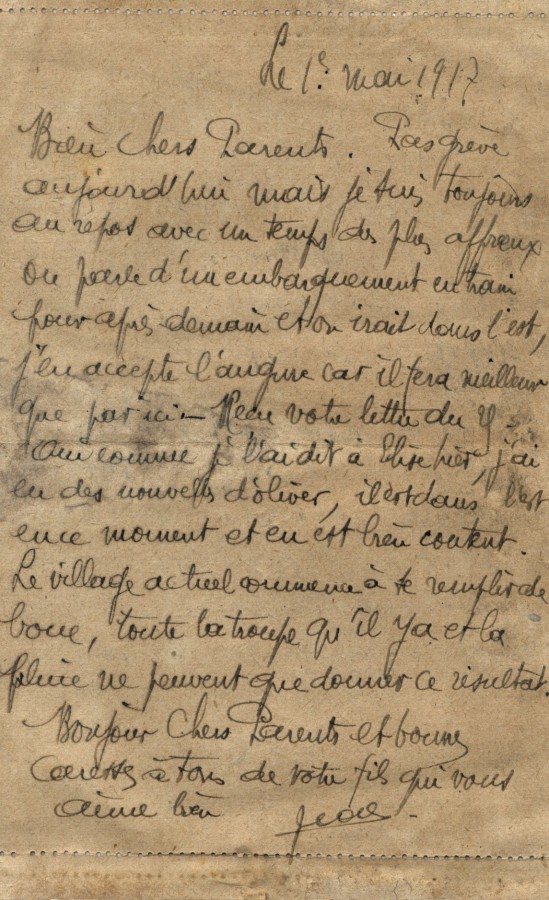 Le 1er mai 1917
Bien chers Parents. Pas grève
aujourd'hui mais je suis toujours
au repos avec un temps des plus affreux
on parle d'un embarquement en train
pour après demain et on irait dans l'est,
j'en accepte l'augure car il fera meilleur
que par ici — Reçu votre lettre du
Oui comme je l'ai dit à Elise hier, j'ai
eu des nouvelles d'oliver, il est dans l'est
en ce moment et en est bien content.
Le village actuel commence à se remplir de
boue, toute la troupe qu'il y a et la
pluie ne peuvent que donner ce résultat.
Bonjour Chers Parents et bonnes
caresses à tous de votre fils qui vous
aime bien